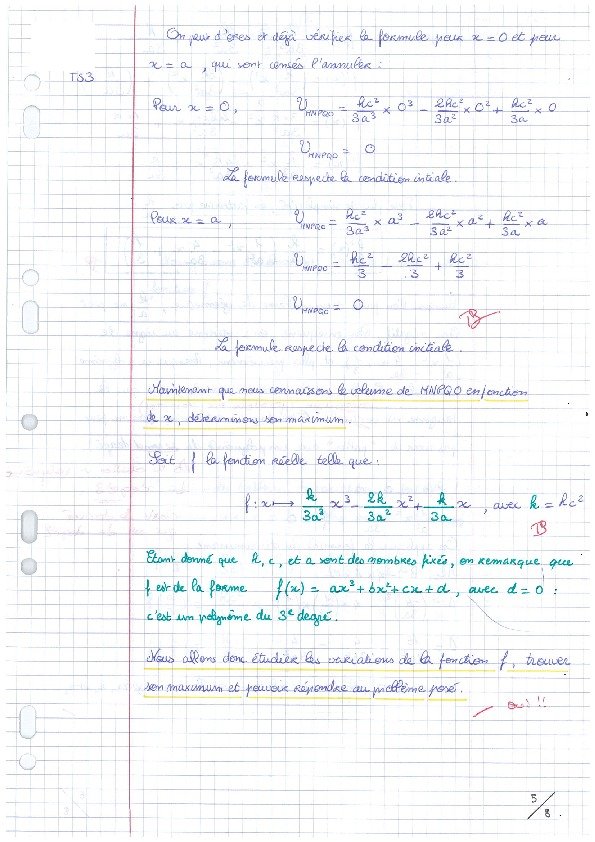 On peut d'ores et déjà vérifier la formule pour x = 0 et pour
x = a, qui sont censés l'annuler :
TS3
Pour x = 0, V_MNPQO = hc²/3a³ × 0³ − 2hc²/3a² × 0² + hc²/3a × 0
V_MNPQO = 0
La formule respecte la condition initiale.
Pour x = a, V_MNPQO = hc²/3a³ × a³ − 2hc²/3a² × a² + hc²/3a × a
V_MNPQO = hc²/3 − 2hc²/3 + hc²/3
V_MNPQO = 0
TB
La formule respecte la condition initiale.
Maintenant que nous connaissons le volume de MNPQO en fonction
de x, déterminons son maximum.
Soit f la fonction réelle telle que :
f : x ⟼ k/3a³ x³ − 2k/3a² x² + k/3a x, avec k = hc²
TB
Etant donné que h, c, et a sont des nombres fixés, on remarque que
f est de la forme f(x) = ax³ + bx² + cx + d, avec d = 0 :
c'est un polynôme du 3e degré.
Nous allons donc étudier les variations de la fonction f, trouver
son maximum et pouvoir répondre au problème posé.
oui !!
5/8.